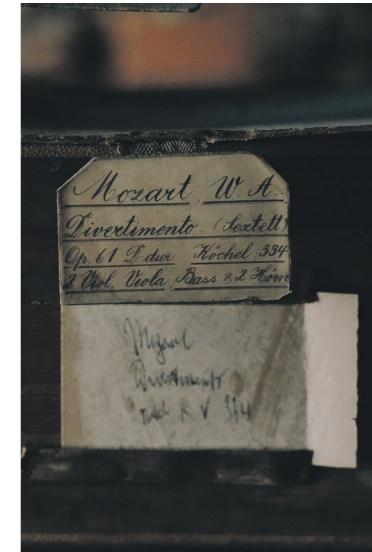 Mozart, W. A.
Divertimento. (Sextett)
Op. 61 D. dur Köchel: 334
2 Viol, Viola Bass & 2 Hörn
Mozart
Divertimento
K. V. 334